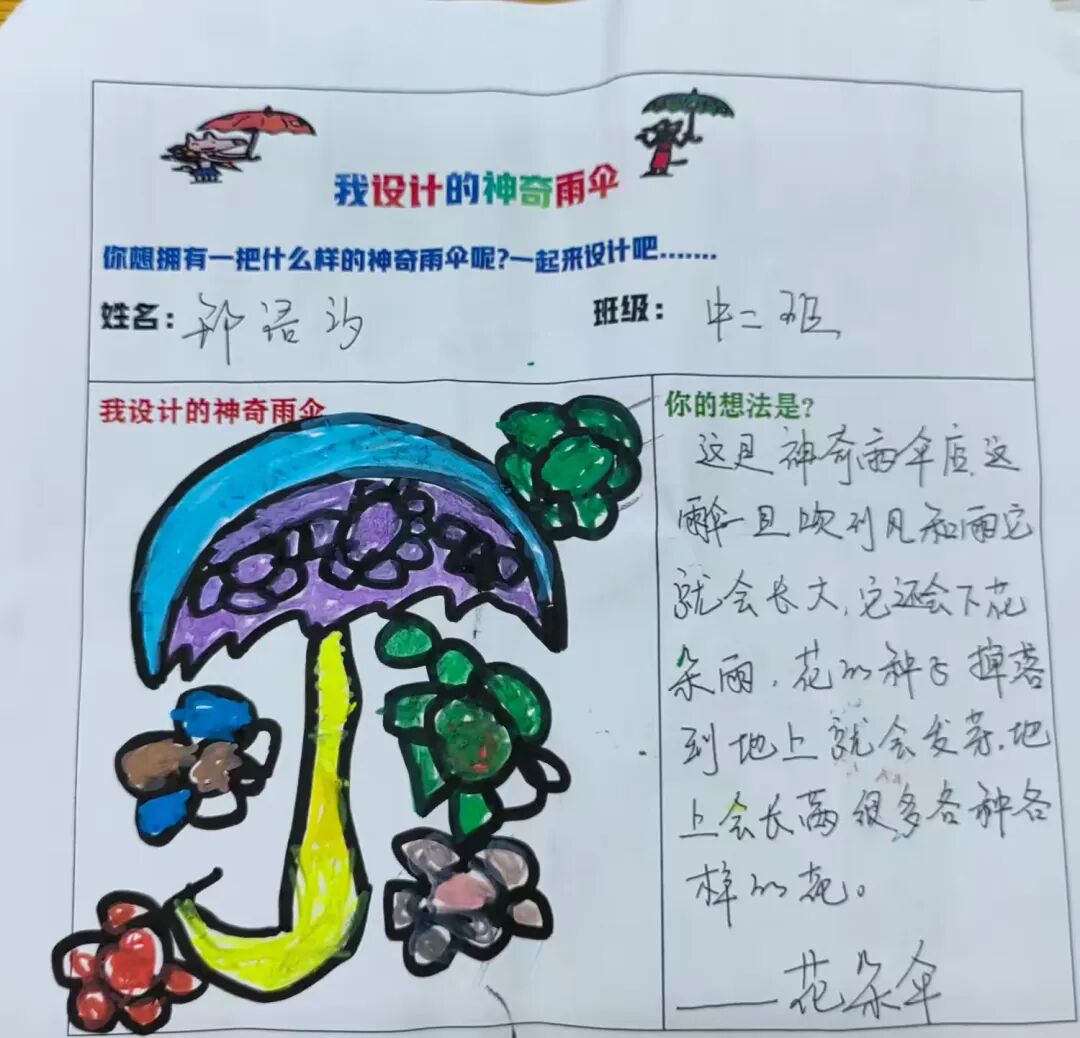 我设计的神奇雨伞
你想拥有一把什么样的神奇雨伞呢?一起来设计吧.......
姓名: 郑语汐 班级: 中二班
我设计的神奇雨伞
你的想法是?
这是神奇雨伞店,这
雨伞一旦吹到风和雨它
就会长大,它还会下花
朵雨,花的种子掉落
到地上就会发芽,地
上会长满很多各种各
样的花。
——花朵伞